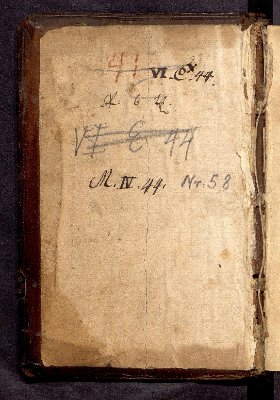 41 VI. Cx. 44.
VI C 44
M. IV. 44. Nr. 58